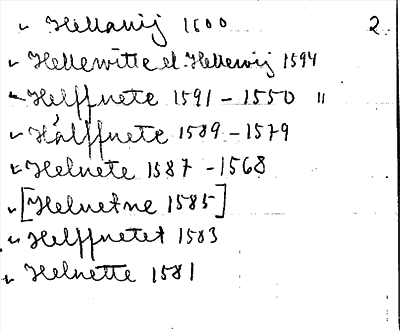 Hellanij 1600 2
Hellewitte el. Hellewij 1594
Helffnete 1591 - 1550 "
Hálffnete 1589 - 1579
Helnete 1587 - 1568
[Helnetne 1585]
Helffnetet 1583
Helnette 1581